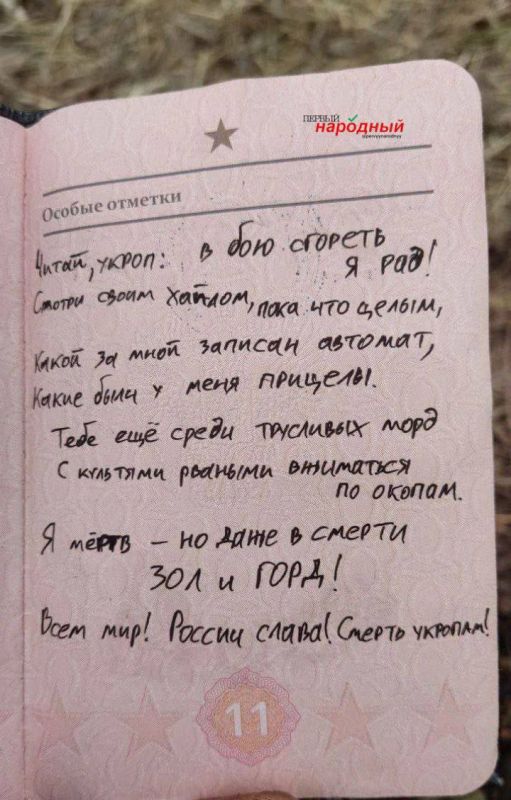 ПЕРВЫЙ
народный
Особые отметки
Читай, укроп: в бою сгореть
я рад!
Смотри своим хайлом, пока что целым,
Какой за мной записан автомат,
Какие были у меня прицелы.
Тебе ещё среди трусливых морд
С культями рваными вжиматься
по окопам.
Я мёртв – но даже в смерти
ЗОЛ и ГОРД!
Всем мир! России слава! Смерть укропам!
11